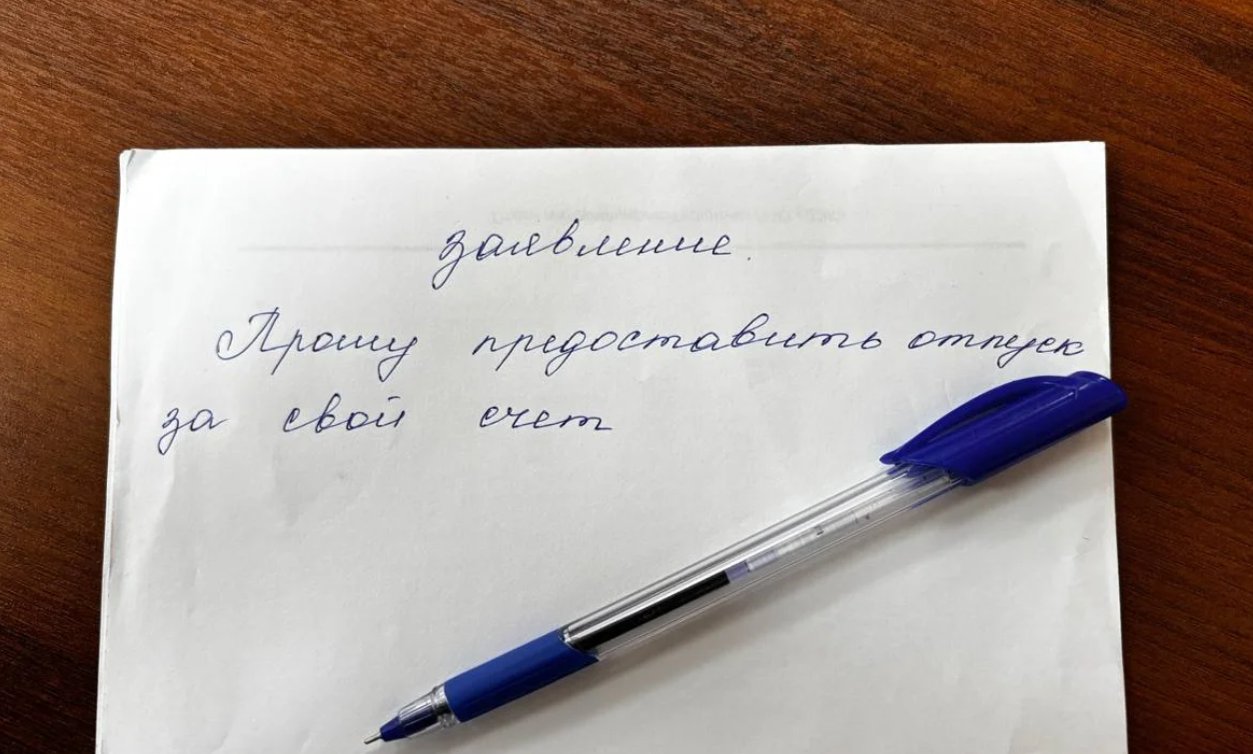 заявление.
Прошу предоставить отпуск
за свой счет